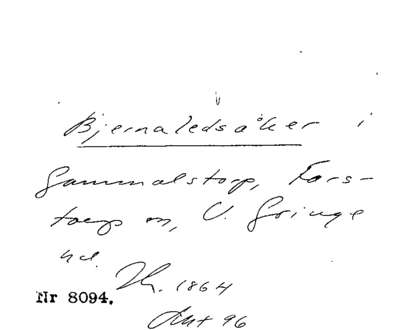 Bjernaledsåker i
Gammalstorp, Fors-
torp sn, V. Göinge
hd. 1864
Nr 8094.
Akt 96